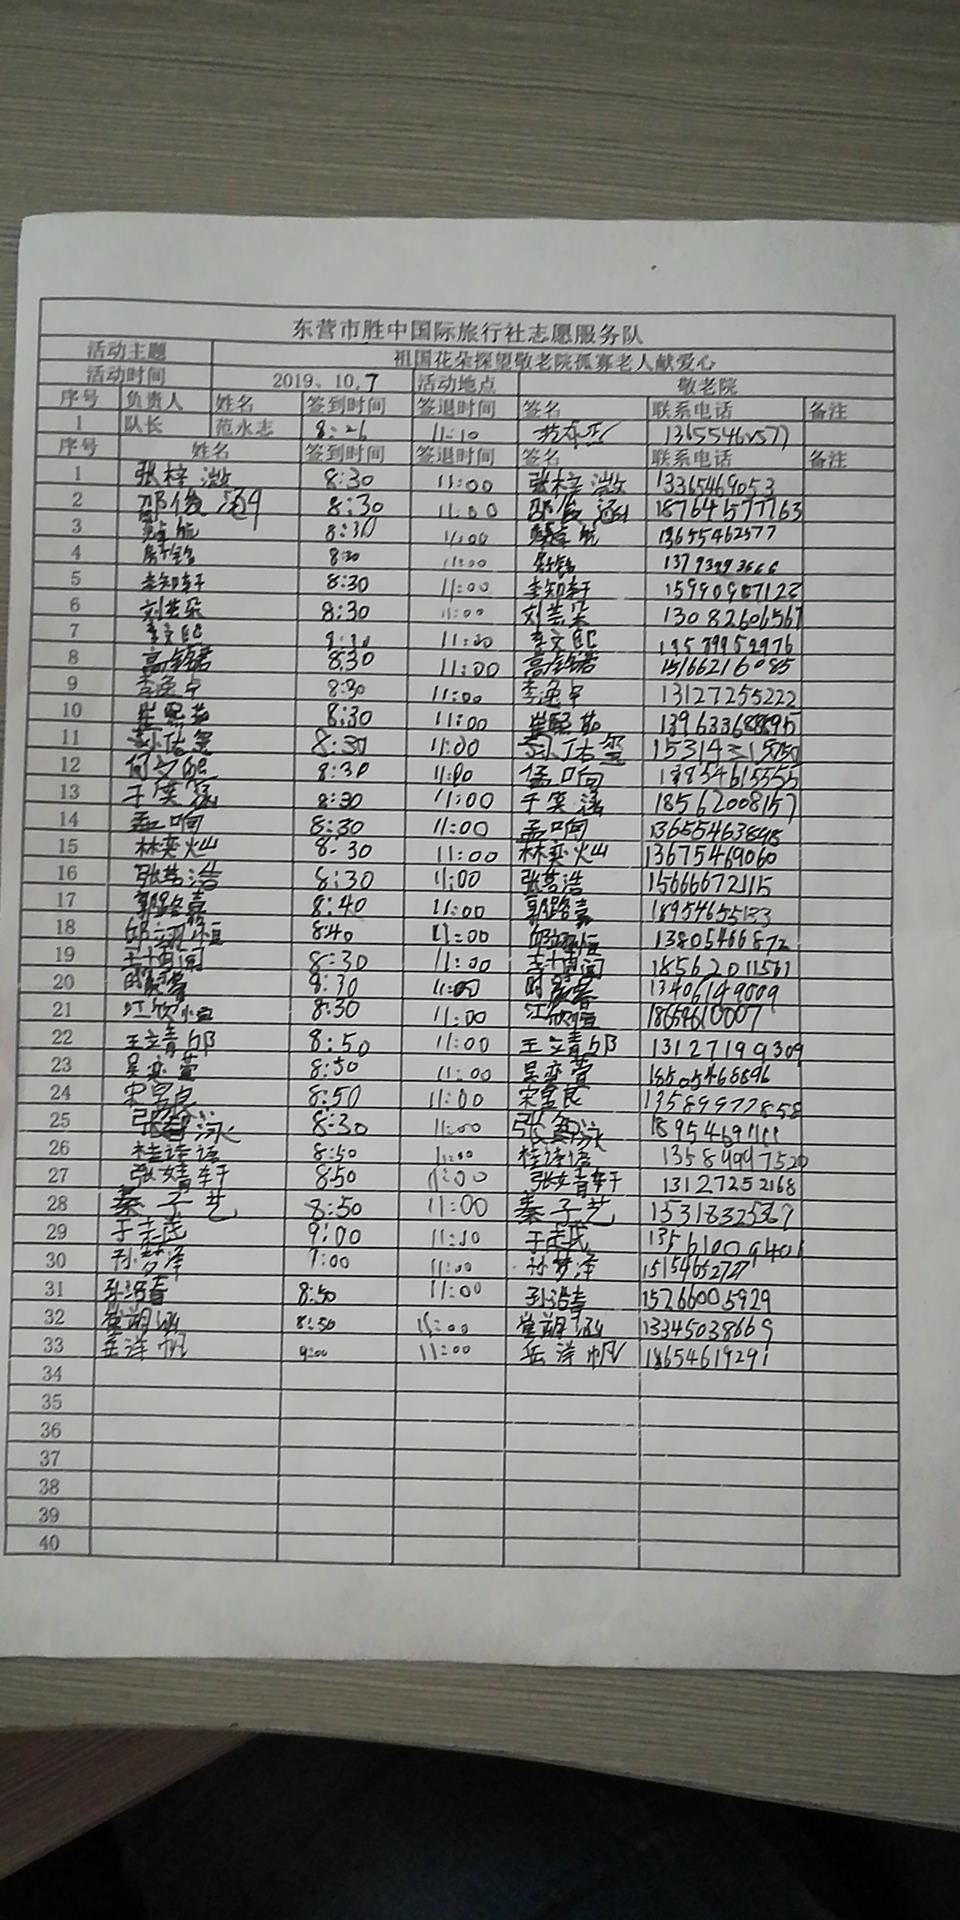 东营市胜中国际旅行社志愿服务队
活动主题 祖国花朵探望敬老院孤寡老人献爱心
活动时间 2019、10.7 活动地点 敬老院
序号 负责人 姓名 签到时间 签退时间 签名 联系电话 备注
1 队长 范永志 8:26 11:10
序号 姓名 签到时间 签退时间 签名 联系电话 备注
1 张梓溦 8:30 11:00 张梓溦 13365469053
2 邵俊涵 8:30 11:00 邵俊涵 18764577763
3 8:30 11:00 13655462577
4 8:30 11:00
5 李知轩 8:30 11:00 李知轩
6 刘芸朵 8:30 11:00 刘芸朵 13082606567
7 李文熙 11:00 李文熙
8 高铭君 8:30 11:00 高铭君 15166216085
9 李逸卓 8:30 11:00 李逸卓 13127255222
10 崔熙茹 8:30 11:00 崔熙茹
11 孙佑玺 8:30 11:00 孙佑玺
12 何文熙 8:30 11:00 孟响
13 于奕涵 8:30 11:00 于奕涵 18562008157
14 孟响 8:30 11:00 孟响
15 林奕灿 8:30 11:00 林奕灿 13675469060
16 张芸浩 8:30 11:00 张芸浩 15666672115
17 郭路嘉 8:40 11:00 郭路嘉 18954655133
18 邱翊恒 8:40 11:00 邱翊恒 13805466872
19 8:30 11:00 18562011561
20 8:30 11:00 13406149009
21 江欣恒 8:30 11:00 江欣恒 18654610007
22 王立青邙 8:50 11:00 王立青邙 13127199309
23 吴奕萱 8:50 11:00 吴奕萱 18505468896
24 8:50 11:00 13589977858
25 8:30 11:00 18954691111
26 桂诗语 8:50 11:00 桂诗语 13589997520
27 张婧轩 8:50 11:00 张婧轩 13127252168
28 綦子艺 8:50 11:00 綦子艺 15318325367
29 于志武 9:00 11:10 于志武 13561009401
30 孙梦泽 9:00 11:00 孙梦泽 15154652727
31 8:50 11:00 15266005929
32 8:50 11:00 13345038669
33 岳洋帆 9:00 11:00 岳洋帆 18654619291
34
35
36
37
38
39
40